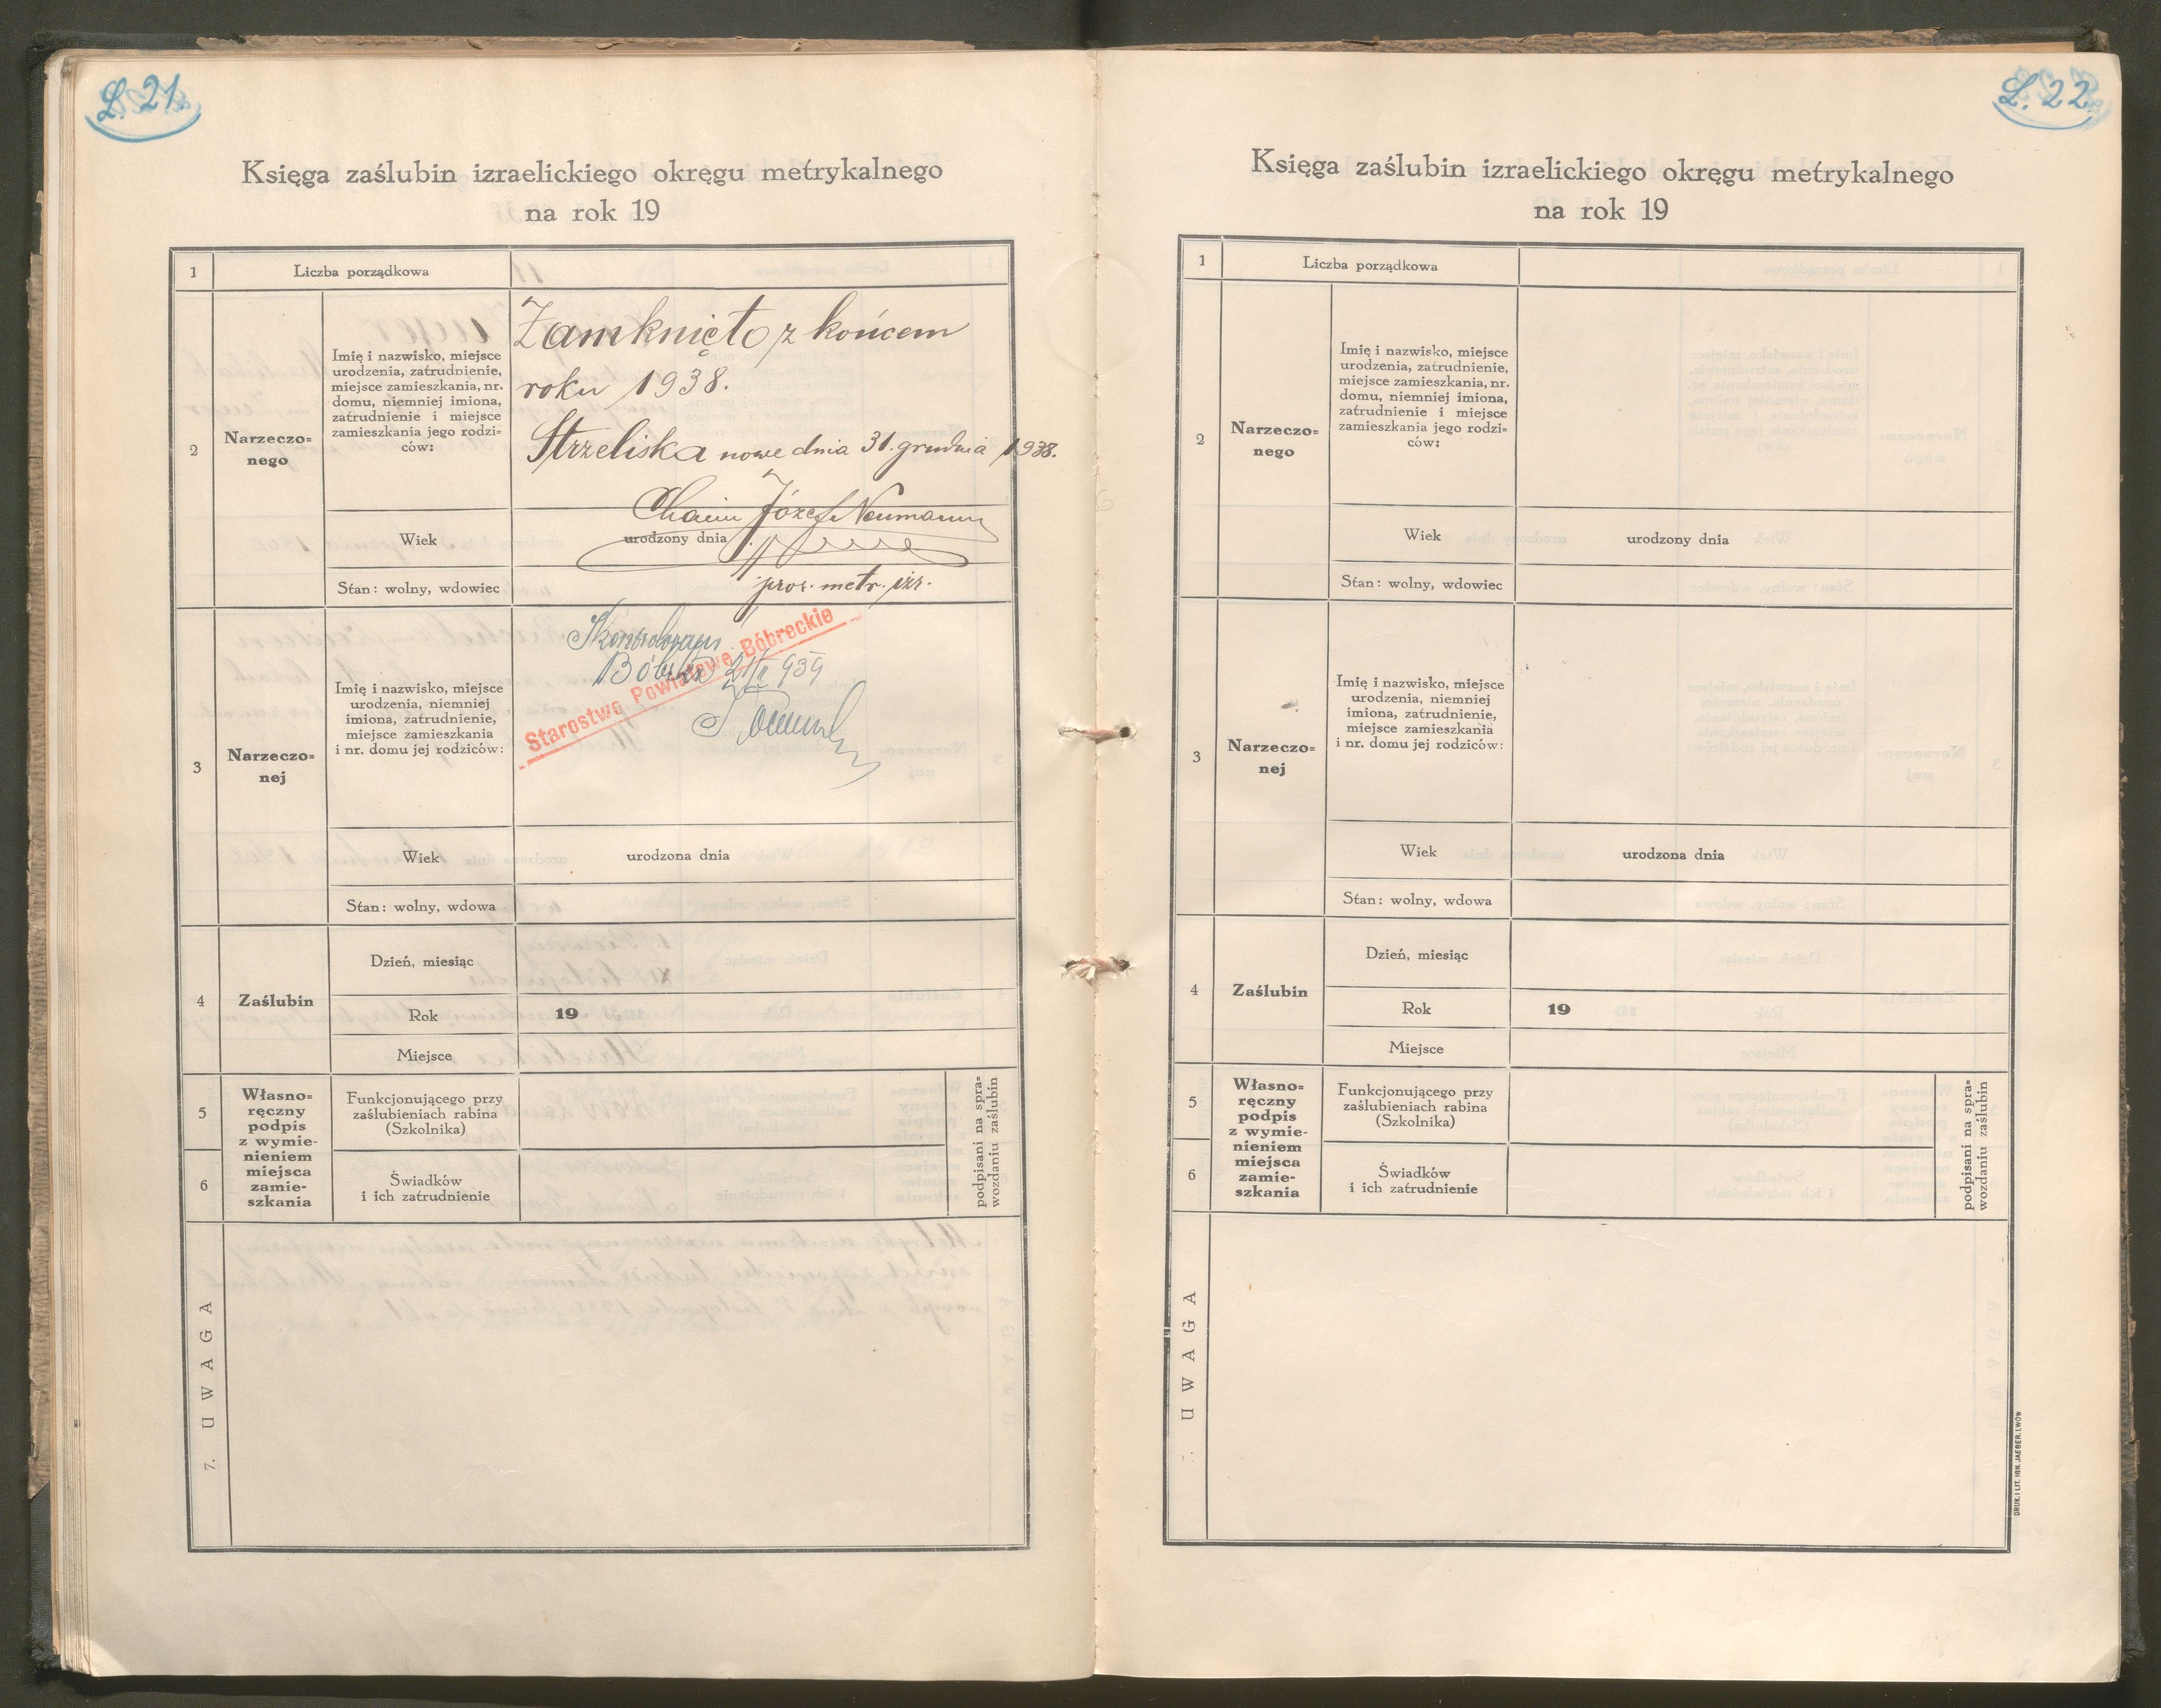 L. 21.
Księga zaślubin izraelickiego okręgu metrykalnego
na rok 19
1
Liczba porządkowa
2
Narzeczo=
nego
Imię i nazwisko, miejsce
urodzenia, zatrudnienie,
miejsce zamieszkania, nr.
domu, niemniej imiona,
zatrudnienie i miejsce
zamieszkania jego rodzi-
ców:
Zamknięto z końcem
roku 1938.
Strzeliska nowe dnia 31. grudnia 1938.
Chaim Józef Neumann
Wiek
urodzony dnia
Stan: wolny, wdowiec
prow. metr. izr.
3
Narzeczo=
nej
Imię i nazwisko, miejsce
urodzenia, niemniej
imiona, zatrudnienie,
miejsce zamieszkania
i nr. domu jej rodziców:
Starostwo Powiatowe Bóbreckie
Bóbrka 21/II 939
Wiek
urodzona dnia
Stan: wolny, wdowa
4
Zaślubin
Dzień, miesiąc
Rok
19
Miejsce
5
6
Własno=
ręczny
podpis
z wymie-
nieniem
miejsca
zamie-
szkania
Funkcjonującego przy
zaślubieniach rabina
(Szkolnika)
Świadków
i ich zatrudnienie
podpisani na spra=
wozdaniu zaślubin
7. UWAGA
L. 22.
Księga zaślubin izraelickiego okręgu metrykalnego
na rok 19
1
Liczba porządkowa
2
Narzeczo=
nego
Imię i nazwisko, miejsce
urodzenia, zatrudnienie,
miejsce zamieszkania, nr.
domu, niemniej imiona,
zatrudnienie i miejsce
zamieszkania jego rodzi-
ców:
Wiek
urodzony dnia
Stan: wolny, wdowiec
3
Narzeczo=
nej
Imię i nazwisko, miejsce
urodzenia, niemniej
imiona, zatrudnienie,
miejsce zamieszkania
i nr. domu jej rodziców:
Wiek
urodzona dnia
Stan: wolny, wdowa
4
Zaślubin
Dzień, miesiąc
Rok
19
Miejsce
5
6
Własno=
ręczny
podpis
z wymie-
nieniem
miejsca
zamie-
szkania
Funkcjonującego przy
zaślubieniach rabina
(Szkolnika)
Świadków
i ich zatrudnienie
podpisani na spra=
wozdaniu zaślubin
UWAGA
DRUK. I LIT. IGN. JAEGER. LWÓW